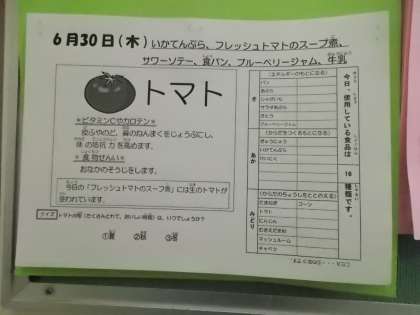 6月30日(木) いかてんぷら、フレッシュトマトのスープ煮、
サワーソテー、食パン、ブルーベリージャム、牛乳
トマト
＊ビタミンCやカロテン＊
皮ふやのど、鼻のねんまくをじょうぶにし、
体の抵抗力を高めます。
＊食物せんい＊
おなかのそうじをします。
今日の「フレッシュトマトのスープ煮」には生のトマトが
使われています。
クイズ トマトの旬(たくさんとれて、おいしい時期)は、いつでしょうか?
①夏 ②秋 ③冬
今日、使用している食品は 16 種類です。
き
(エネルギーのもとになる)
パン
あぶら
じゃがいも
サラダあぶら
さとう
ブルーベリージャム
あか
(からだをつくるもとになる)
ぎゅうにゅう
いかてんぷら
みどり
(からだのちょうしをととのえる)
たまねぎ コーン
トマト
にんじん
むきえだまめ
マッシュルーム
キャベツ